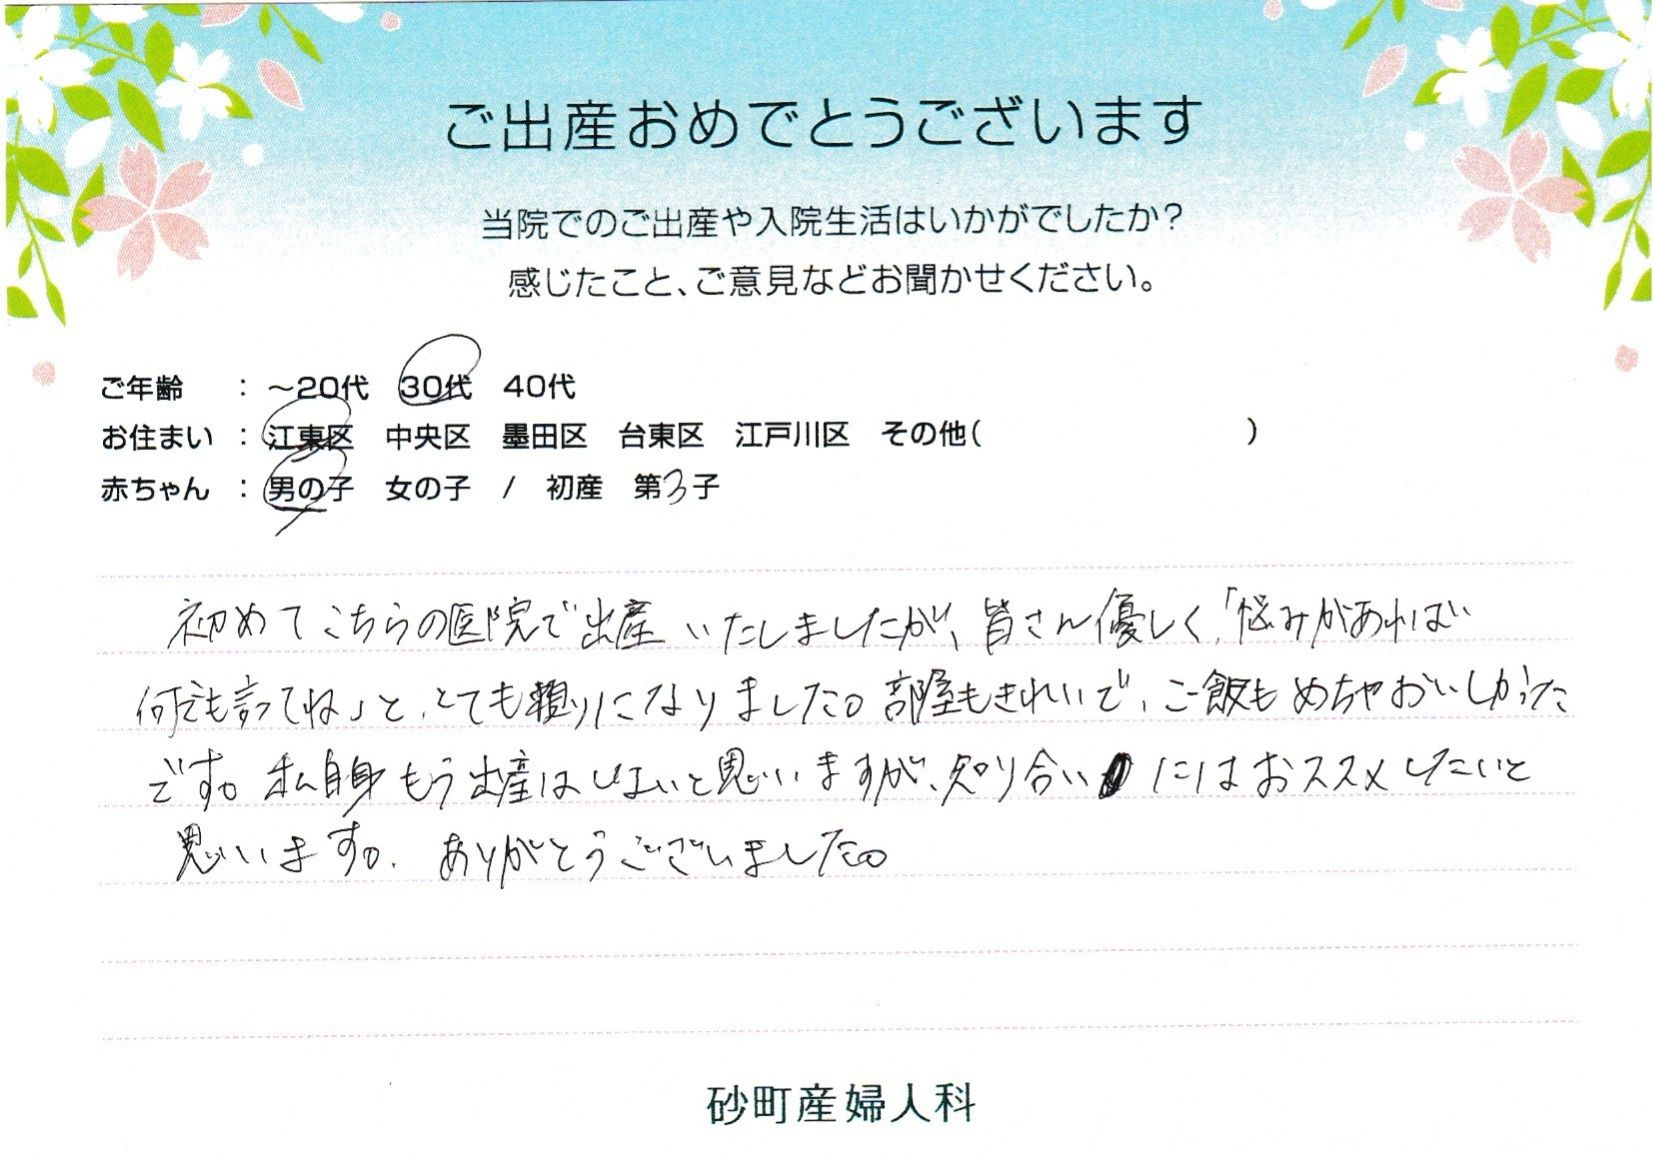 ご出産おめでとうございます
当院でのご出産や入院生活はいかがでしたか?
感じたこと、ご意見などお聞かせください。
ご年齢 : ～20代 30代 40代
お住まい : 江東区 中央区 墨田区 台東区 江戸川区 その他( )
赤ちゃん : 男の子 女の子 / 初産 第3子
初めてこちらの医院で出産いたしましたが、皆さん優しく、「悩みがあれば
何でも言ってね」と、とても頼りになりました。部屋もきれいで、ご飯もめちゃおいしかった
です。私自身もう出産はしまいと思いますが、知り合いにはおススメしたいと
思います。ありがとうございました。
砂町産婦人科